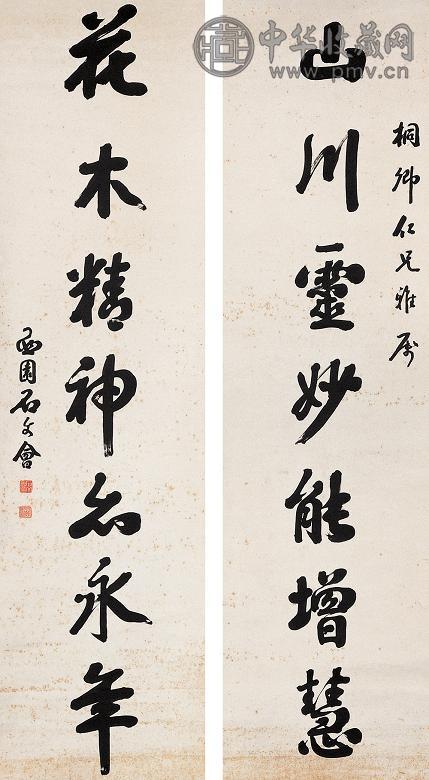 中华收藏网
www.pmv.cn
桐卿仁兄雅属
山川靈妙能增慧
花木精神亦永年
西園石文會